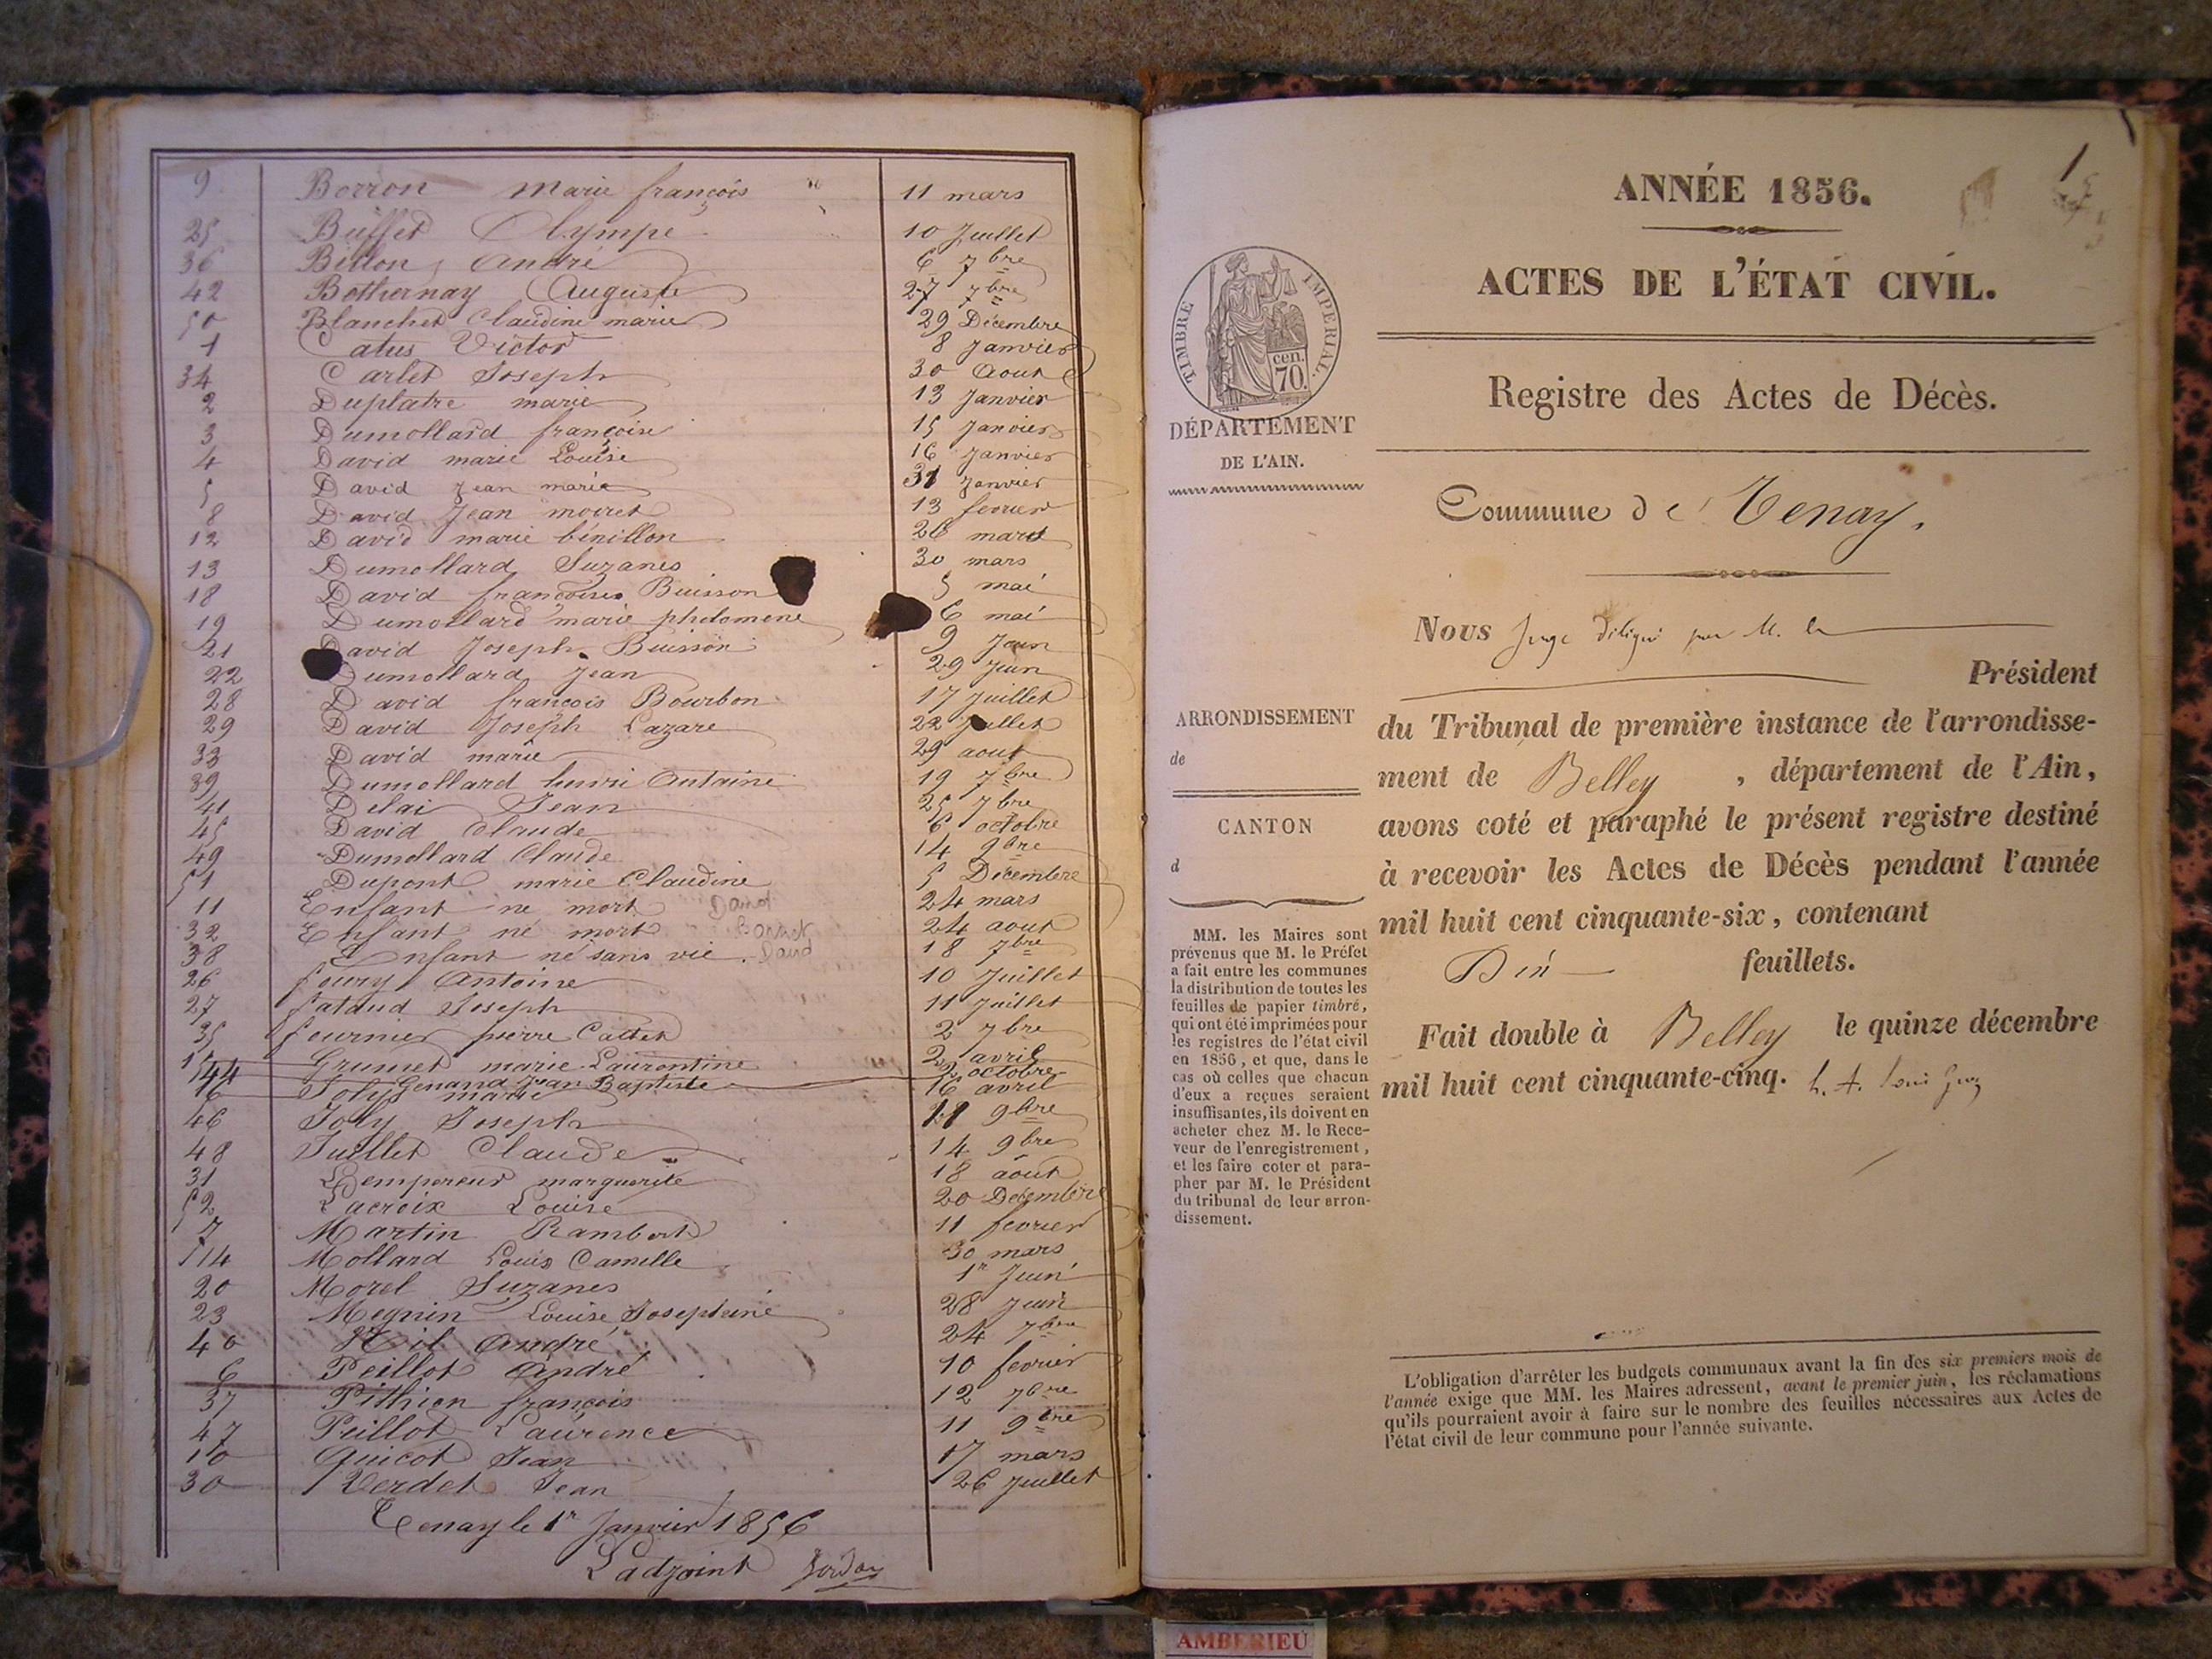 9 Borron Marie françois 11 mars
25 Buffet Olympe 10 Juillet
36 Billon André 6 7bre
42 Bothernay Auguste 27 7bre
50 Blanchet Claudine marie 29 Décembre
1 Catus Victor 8 Janvier
34 Carlet Joseph 30 Aout
2 Duplatre marie 13 Janvier
3 Dumollard françoise 15 Janvier
4 David marie Louise 16 Janvier
5 David Jean marie 31 Janvier
8 David Jean moiret 13 fevrier
12 David marie bénillon 26 mars
13 Dumollard Suzanes 30 mars
18 David françoises Buisson 5 mai
19 Dumollard marie philomene 6 mai
21 David Joseph Buisson 9 Juin
22 Dumollard Jean 29 Juin
28 David francois Bourbon 17 Juillet
29 David Joseph Lazare 22 Juillet
33 David marie 29 aout
39 Dumollard henri Antoine 19 7bre
41 Delai Jean 25 7bre
45 David Claude 6 octobre
49 Dumollard Claude 14 9bre
51 Dupont marie Claudine 5 Décembre
11 Enfant né mort David 24 mars
32 Enfant né mort 24 aout
38 Enfant né sans vie David 18 7bre
26 foury Antoine 10 Juillet
27 fataud Joseph 11 Juillet
35 fournier pierre Cattet 2 7bre
15 Grumet marie Laurentine 2 avril
44 Genand Jean Baptiste 2 octobre
16 Joly marie 16 avril
46 Joly Joseph 11 9bre
48 Juillet Claude 14 9bre
31 Lempereur marguerite 18 aout
52 Lacroix Louise 20 Décembre
7 Martin Rambert 11 fevrier
14 Mollard Louis Camille 30 mars
20 Morel Suzanes 1r Juin
23 Megnin Louise Josephine 28 Juin
40 Nil André 24 7bre
6 Peillot André 10 fevrier
37 Pithion françois 12 7bre
47 Peillot Laurence 11 9bre
10 Quicot Jean 17 mars
30 Verdet Jean 26 Juillet
Tenay le 1r Janvier 1856
L'adjoint Jordan
1
ANNÉE 1856.
ACTES DE L'ÉTAT CIVIL.
TIMBRE IMPERIAL.
cen.
70.
DÉPARTEMENT
DE L'AIN.
Registre des Actes de Décès.
Commune de Tenay.
Nous Juge délégué par M. le
Président
ARRONDISSEMENT
de
CANTON
d
du Tribunal de première instance de l'arrondisse-
ment de Belley, département de l'Ain,
avons coté et paraphé le présent registre destiné
à recevoir les Actes de Décès pendant l'année
mil huit cent cinquante-six, contenant
feuillets.
Fait double à Belley le quinze décembre
mil huit cent cinquante-cinq.
MM. les Maires sont
prévenus que M. le Préfet
a fait entre les communes
la distribution de toutes les
feuilles de papier timbré,
qui ont été imprimées pour
les registres de l'état civil
en 1856, et que, dans le
cas où celles que chacun
d'eux a reçues seraient
insuffisantes, ils doivent en
acheter chez M. le Rece-
veur de l'enregistrement,
et les faire coter et para-
pher par M. le Président
du tribunal de leur arron-
dissement.
L'obligation d'arrêter les budgets communaux avant la fin des six premiers mois de
l'année exige que MM. les Maires adressent, avant le premier juin, les réclamations
qu'ils pourraient avoir à faire sur le nombre des feuilles nécessaires aux Actes de
l'état civil de leur commune pour l'année suivante.
AMBERIEU